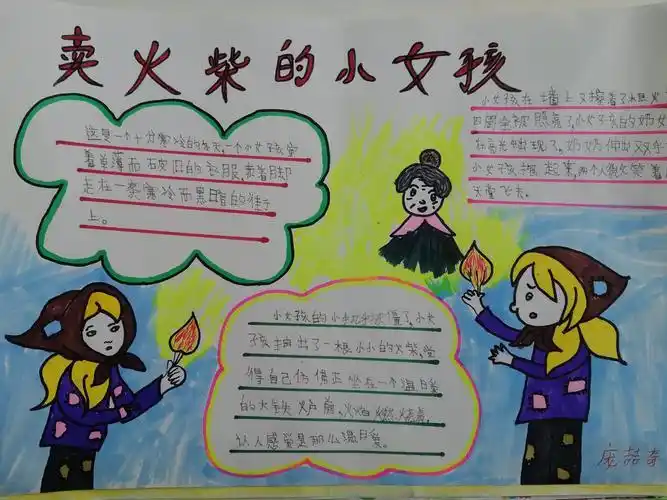 卖火柴的小女孩
这是一个十分寒冷的冬天,一个小女孩穿
着单薄而破旧的衣服,赤着脚
走在一条寒冷而黑暗的街子
上。
小女孩在墙上又擦着了火
四周全被照亮了,小女孩的奶奶
在亮光中出现了,奶奶伸出双手
小女孩抱起来,两个人微笑着
天堂飞去。
小女孩的小手冻僵了,小女
孩抽出了一根小小的火柴,觉
得自己仿佛正坐在一个温暖
的大铁炉前,火焰燃烧着,
让人感觉是那么温暖。
庞喆奇